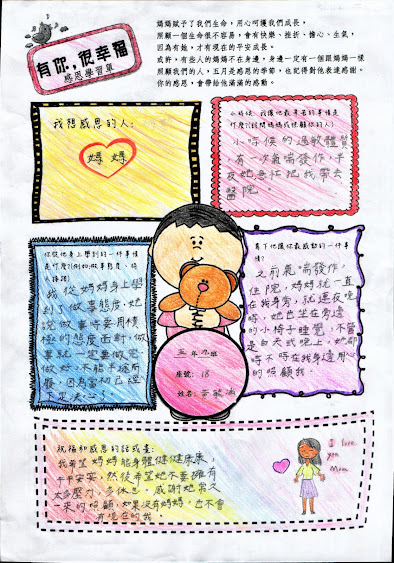 有你,很幸福
感恩學習單
媽媽賦予了我們生命，用心呵護我們成長，
照顧一個生命很不容易，會有快樂、挫折、擔心、生氣，
因為有她，才有現在的平安成長。
或許，有些人的媽媽不在身邊，身邊一定有一個跟媽媽一樣
照顧我們的人，五月是感恩的季節，也記得對他表達感謝。
你的感恩，會帶給他滿滿的感動。
我想感恩的人：
媽媽
小時候的過敏體質，
有一次氣喘發作，半
夜她急忙把我帶去
醫院。
你從他身上學到的一件事情
我從媽媽身上學
到了做事態度，她
說做事時要用積
極的態度面對，做
事就一定要做完
做好，不能半途而
廢，因為當初已經
下定決心。
有下他讓你最感動的一件事
情？
之前氣喘發作，
住院，媽媽就一直
在我身旁，就連夜晚
時，她也坐在旁邊
的小椅子睡覺，不管
是白天或晚上，她都
時不時在我身邊用心
的照顧我。
五年九班
座號：18
姓名：
祝福和感恩的話或畫：
我希望媽媽能身體健健康康，
平平安安，然後希望她不要擁有
太多壓力，多休息，感謝她常久
一來的照顧，如果沒有媽媽，也不會
有現在的我。
I love
you
Mom